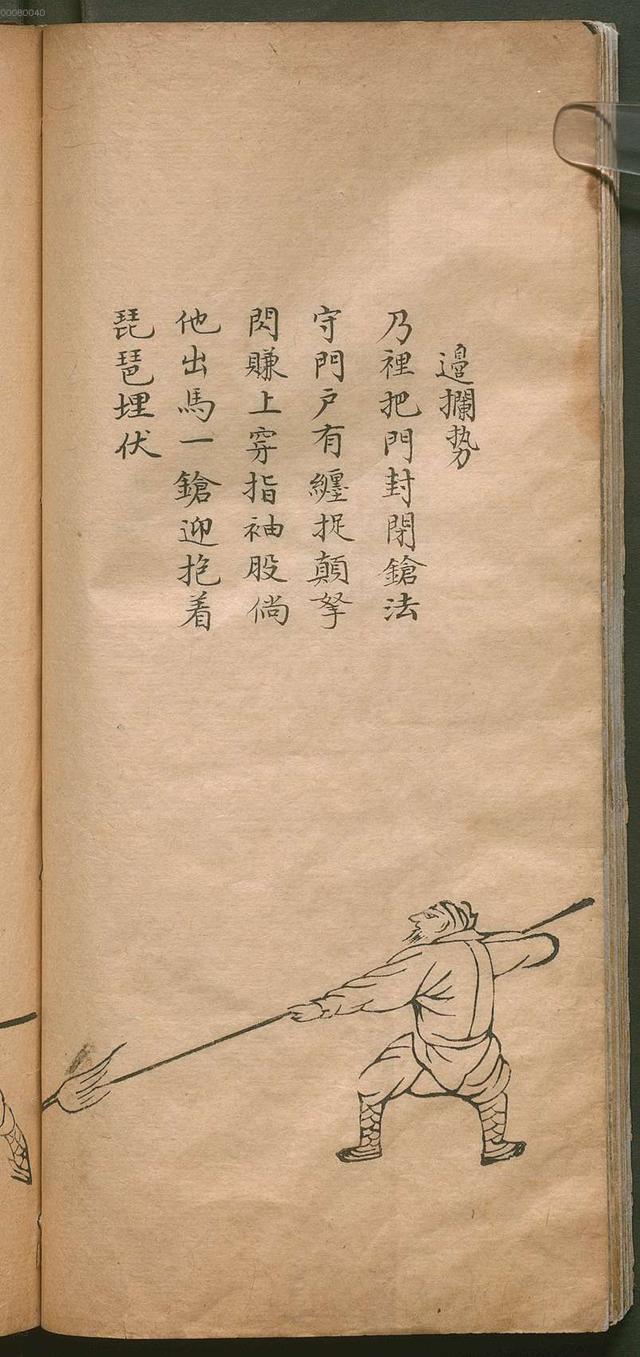 00080040
邉攔势
乃裡把門封閉鎗法
守門户有纏捉顛拏
閃賺上穿指袖股倘
他出馬一鎗迎抱着
琵琶埋伏